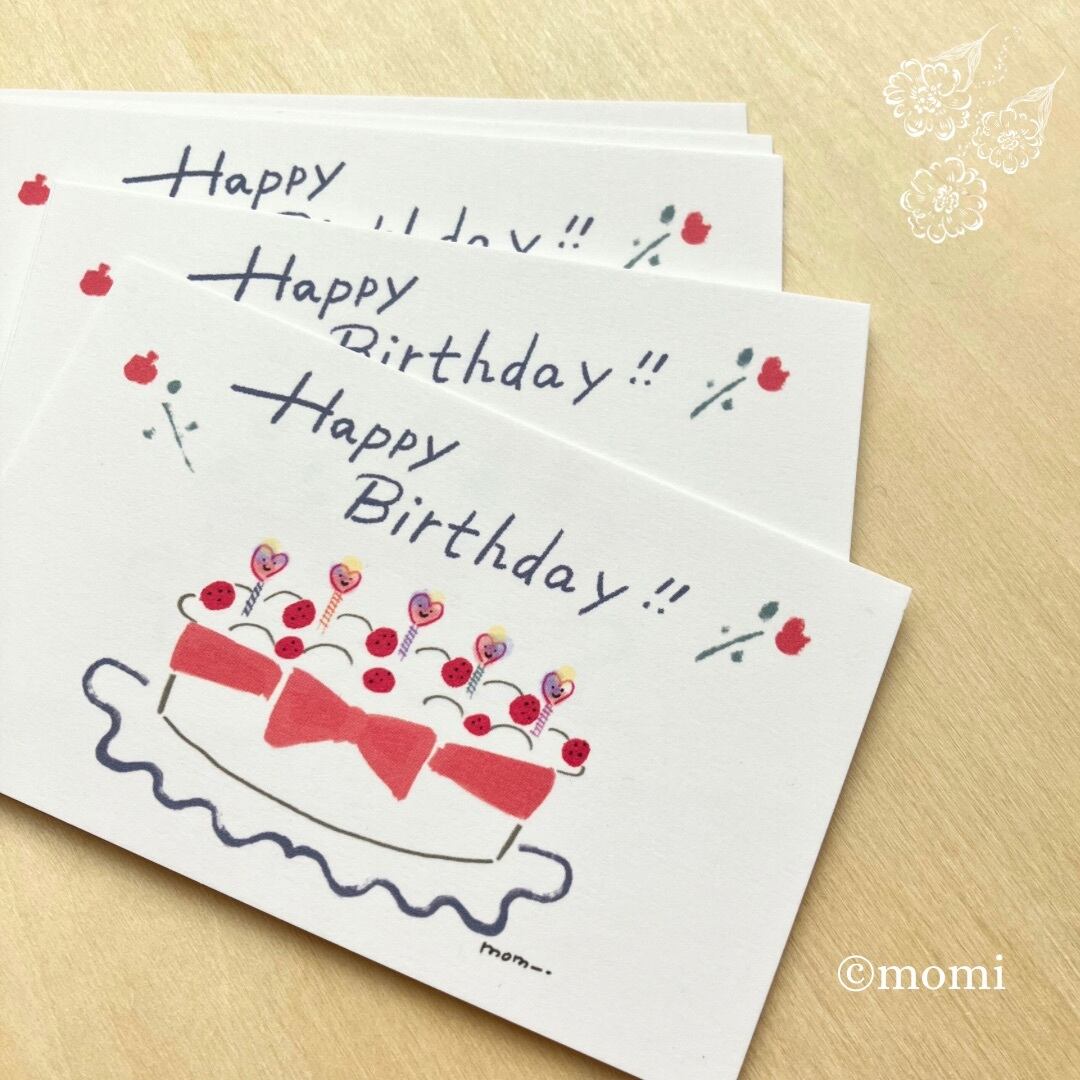 Happy
Birthday!!
Happy
Birthday!!
Happy
Birthday!!
mom-.
©momi